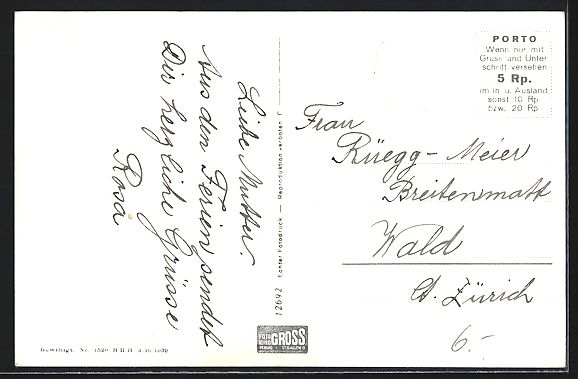 Liebe Mutter.
Aus den Ferien sendet
Dir herzliche Grüsse
Rosa
12692 Echter Fotodruck — Reproduktion verboten
PORTO
Wenn nur mit
Gruss und Unter
schrift versehen
5 Rp.
im in u. Ausland
sonst 10 Rp
bzw. 20 Rp.
Frau
Rüegg-Meier
Breitenmatt
Wald
Ct. Zürich
6.-
FOTO
GROSS
ST. GALLEN